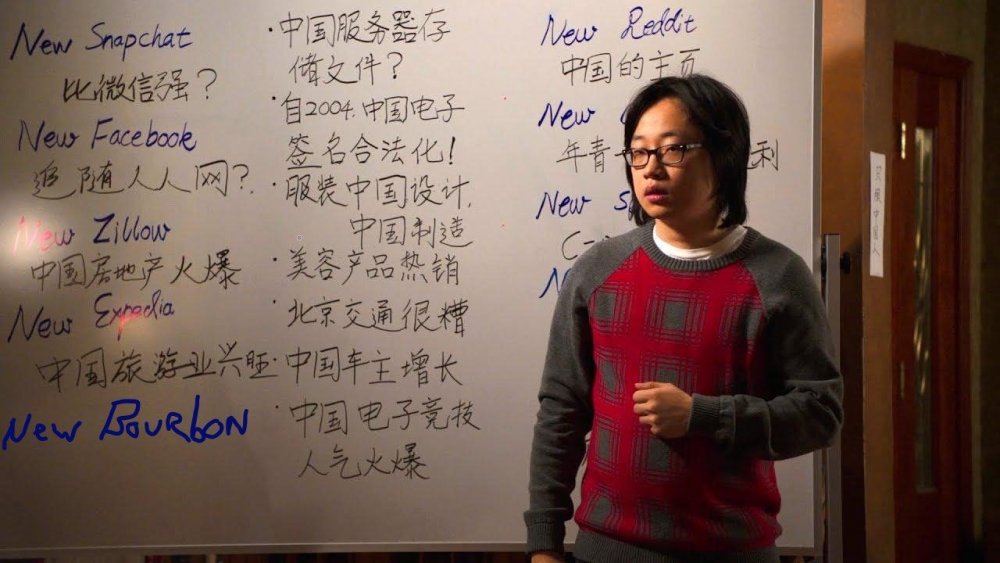 New Snapchat
比微信强？
New Facebook
追随人人网？
New Zillow
中国房地产火爆
New Expedia
中国旅游业兴旺
New BOURBON
·中国服务器存
储文件？
·自2004.中国电子
签名合法化！
·服装中国设计，
中国制造
·美容产品热销
·北京交通很糟
·中国车主增长
·中国电子竞技
人气火爆
New Reddit
中国的主页
New
年青 利
New
C-
中国人